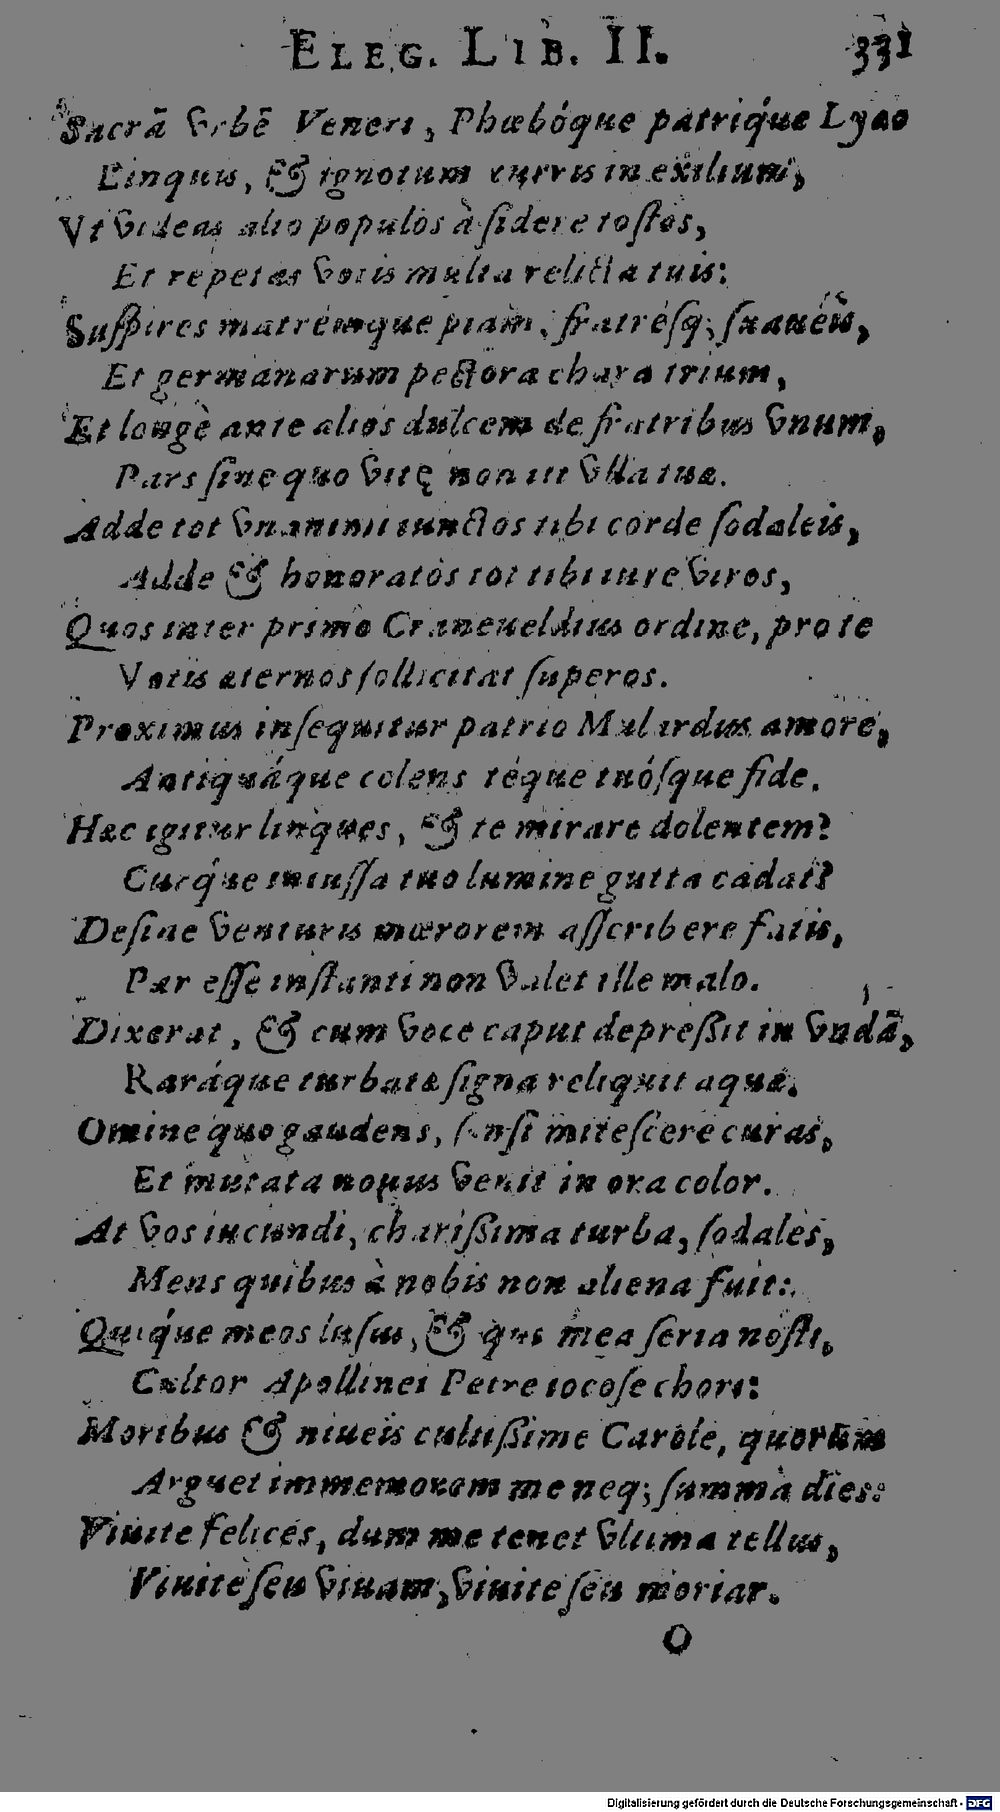 ELEG. LIB. II. 331
Sacrā vrbē Veneri, Phœbóque patriq́ue Lyæo
Linquis, & ignotum curris in exilium,
Vt videas alio populos à sidere tostos,
Et repetas votis multa relicta tuis:
Suspires matrémque piam, fratrésq; suaueis,
Et germanarum pectora chara trium,
Et longè ante alios dulcem de fratribus vnum,
Pars sine quo vitę non sit vlla tuæ.
Adde tot vnanimi iunctos tibi corde sodaleis,
Adde & honoratos tot tibi iure viros,
Quos inter primo Craneueldius ordine, pro te
Votis æternos sollicitat superos.
Proximus insequitur patrio Mulardus amore,
Antiquáque colens téque tuósque fide.
Hæc igitur linques, & te mirare dolentem?
Curq́ue inuissa tuo lumine gutta cadat?
Desine venturis mœrorem asscribere fatis,
Par esse instanti non valet ille malo.
Dixerat, & cum voce caput depreßit in vndā,
Raráque turbatæ signa reliquit aquæ.
Omine quo gaudens, sensi mitescere curas,
Et mutata nouus venit in ora color.
At vos iucundi, charißima turba, sodales,
Mens quibus à nobis non aliena fuit:
Quiq́ue meos lusus, & qui mea seria nosti,
Cultor Apollinei Petre iocose chori:
Moribus & niueis cultißime Carole, quorum
Arguet immemorem me neq; summa dies:
Viuite felices, dum me tenet vltima tellus,
Viuite seu viuam, viuite seu moriar.
O
Digitalisierung gefördert durch die Deutsche Forschungsgemeinschaft - DFG